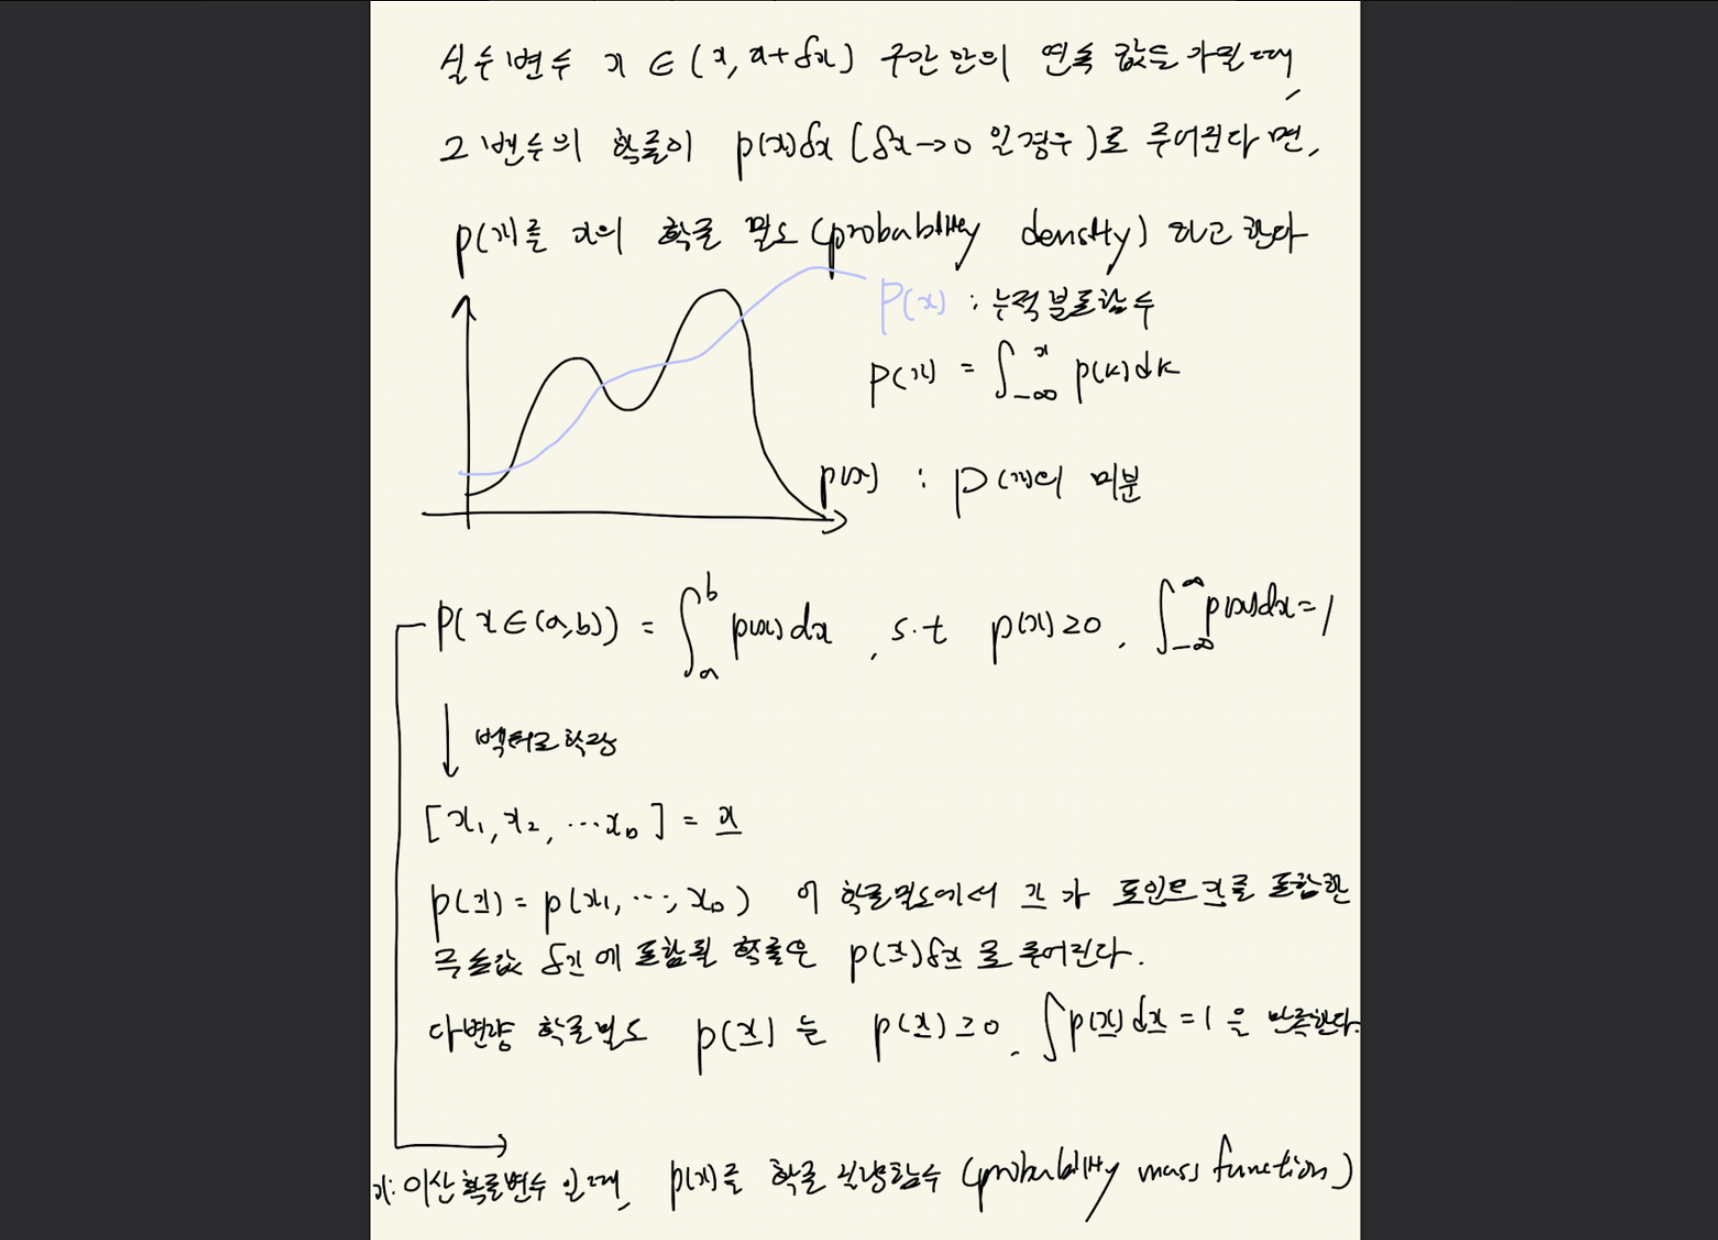 실수 변수 x ∈ (x, x+δx) 구간 안의 연속 값을 가질 때,
그 변수의 확률이 p(x)δx (δx→0 일 경우)로 주어진다면,
p(x)를 x의 확률 밀도 (probability density) 라고 한다
P(x) : 누적분포함수
P(x) = ∫_{-∞}^{x} p(k)dk
p(x) : P(x)의 미분
P(x∈(a,b)) = ∫_{a}^{b} p(x)dx , s.t p(x)≥0 , ∫_{-∞}^{∞} p(x)dx=1
↓ 벡터로 확장
[x₁, x₂, ⋯x_D] = x
p(x) = p(x₁, ⋯, x_D) 이 확률밀도에서 x가 포인트 x를 포함한
무한소값 δx에 포함될 확률은 p(x)δx로 주어진다.
다변량 확률밀도 p(x)는 p(x)≥0 , ∫p(x)dx = 1 을 만족한다.
x: 이산확률변수 일 때, p(x)를 확률 질량함수 (probability mass function)